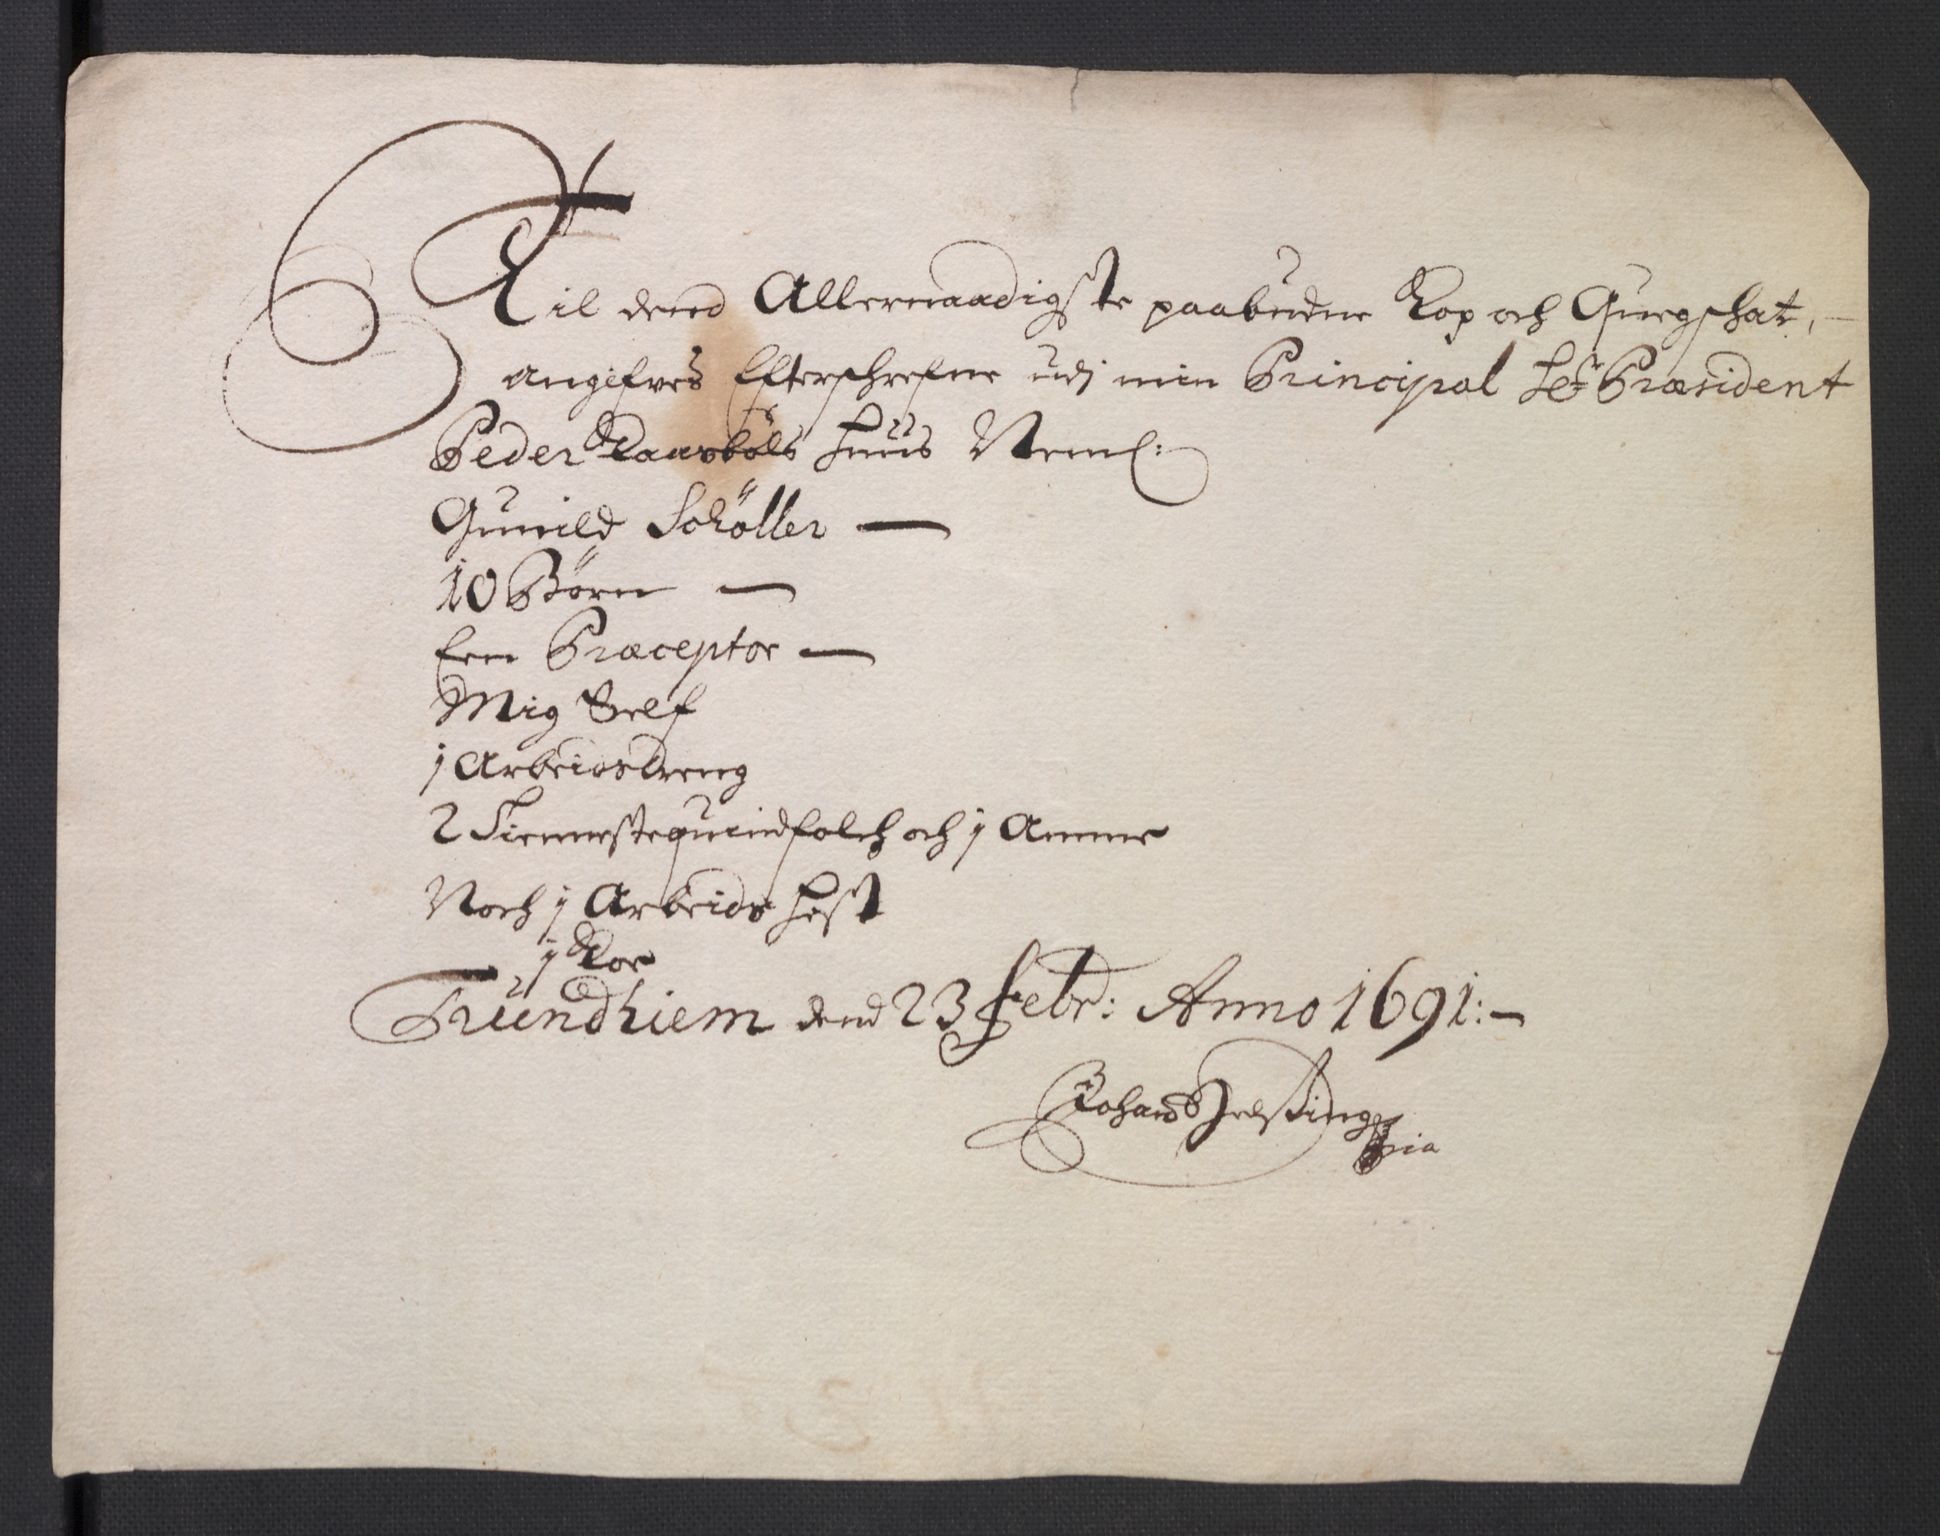 Til dend Allernaadigste paabudne Kop och Qvegschat,
angifves Efterschrefne udj min Principal Hr Præsident
Peder Kaarbøls Huus Neml:
Gunild Schøller —
10 Børn —
Een Præceptor —
Mig Self
1 Arbeidsdreng
2 Tienneste quindfolch och 1 Amme
Noch 1 Arbeids Hest
1 Koe
Trundhiem dend 23 Febr: Anno 1691:
Johan Helsing